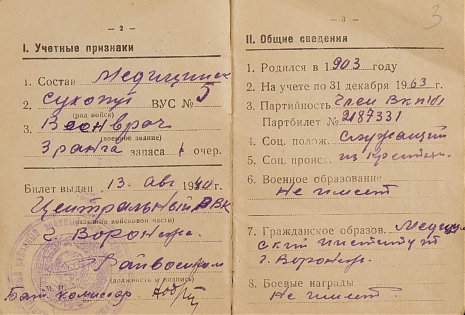 — 2 —
I. Учетные признаки
1. Состав Медицинск
2. Сухопут ВУС № 5
(род войск)
3. Военврач
(военное звание)
3 ранга запаса 1 очер.
Билет выдан 13 авг 1940 г.
Центральный РВК
(название войсковой части)
г. Воронеж.
Райвоенком
М. П. (должность и подпись)
Бат. комиссар
— 3 —
3
II. Общие сведения
1. Родился в 1903 году
2. На учете по 31 декабря 1963 г.
3. Партийность Член ВКП(б)
Партбилет № 2187331
4. Соц. полож. Служащий
5. Соц. происх. из крестьян.
6. Военное образование
Не имеет
7. Гражданское образов. Медицин
ский институт
г. Воронеж.
8. Боевые награды
Не имеет.